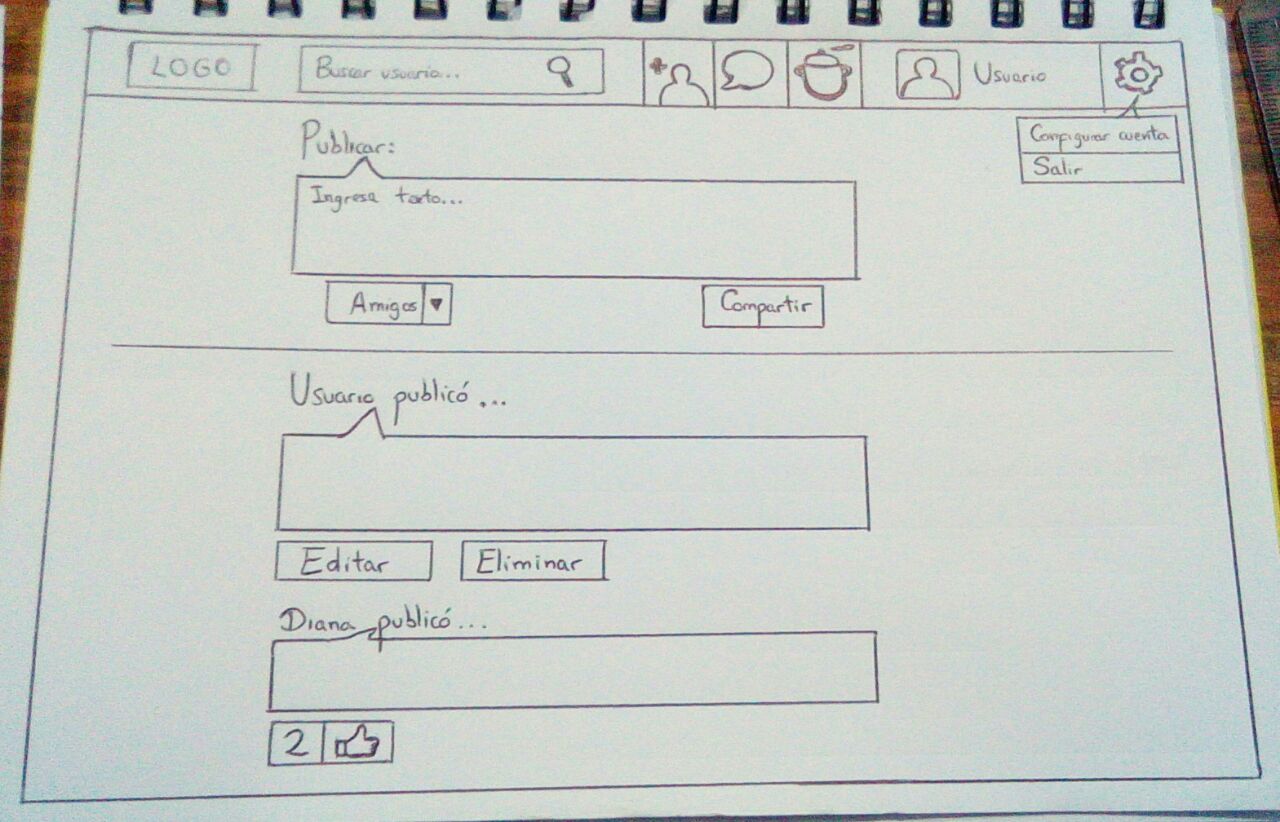 LOGO
Buscar usuario...
Usuario
Configurar cuenta
Salir
Publicar:
Ingresa texto...
Amigos
Compartir
Usuario publicó...
Editar
Eliminar
Diana publicó...
2